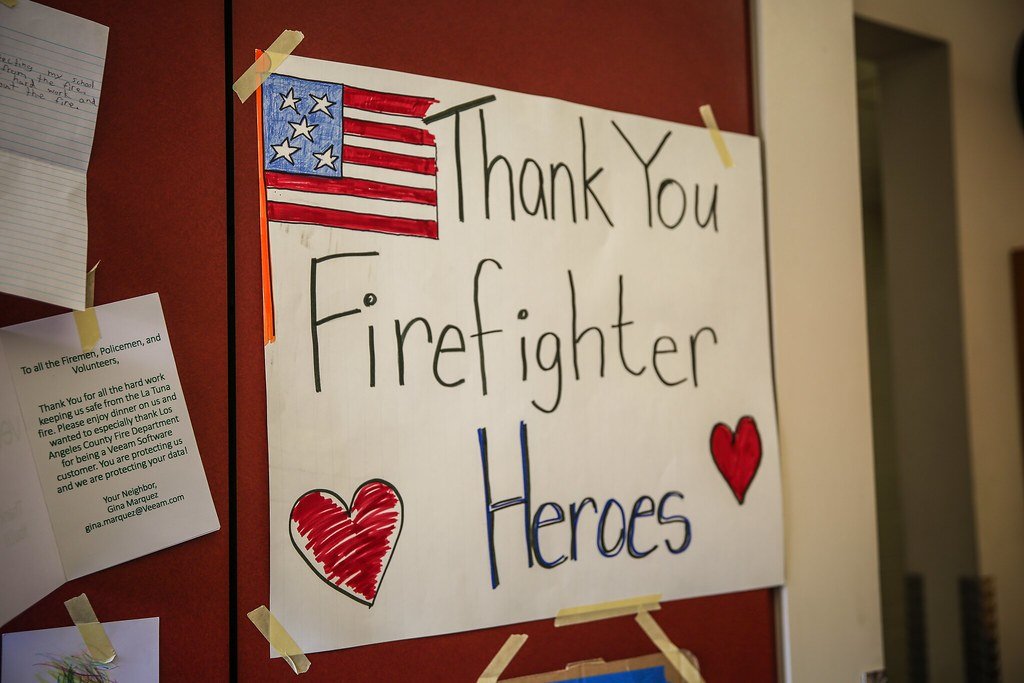 ecting my school
from the fire.
hard work and
out the fire.
To all the Firemen, Policemen, and
Volunteers,
Thank You for all the hard work
keeping us safe from the La Tuna
fire. Please enjoy dinner on us and
wanted to especially thank Los
Angeles County Fire Department
for being a Veeam Software
customer. You are protecting us
and we are protecting your data!
Your Neighbor,
Gina Marquez
gina.marquez@Veeam.com
Thank You
Firefighter
Heroes